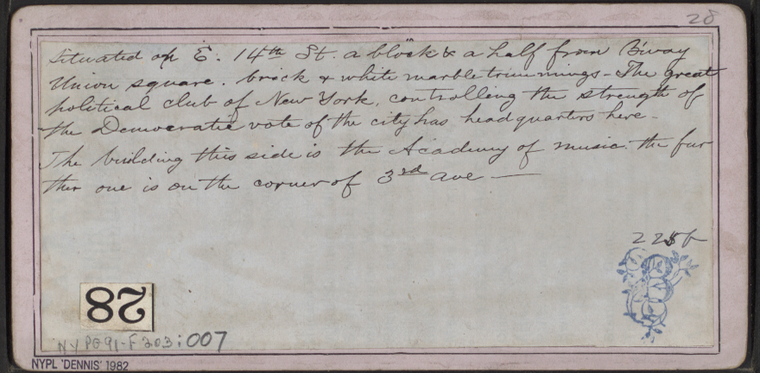 28
Situated on E. 14th St. a block & a half from B'way
Union square. brick & white marble trimmings - The great
political club of New York, controlling the strength of
the Democratic vote of the city has headquarters here -
The building this side is the Academy of music: the fur
ther one is on the corner of 3rd ave —
28
NYPG91-F203:007
NYPL 'DENNIS' 1982